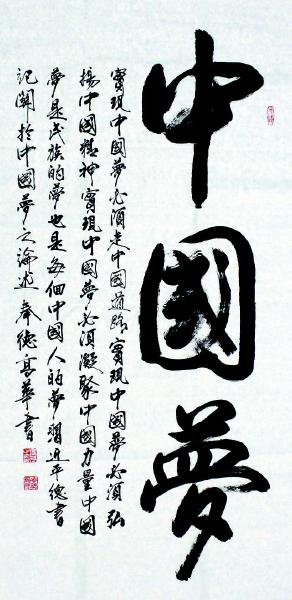 中國夢
實現中國夢必須走中國道路實現中國夢必須弘
揚中國精神實現中國夢必須凝聚中國力量中國
夢是民族的夢也是每個中國人的夢習近平總書
記關於中國夢之論述奉德高華書